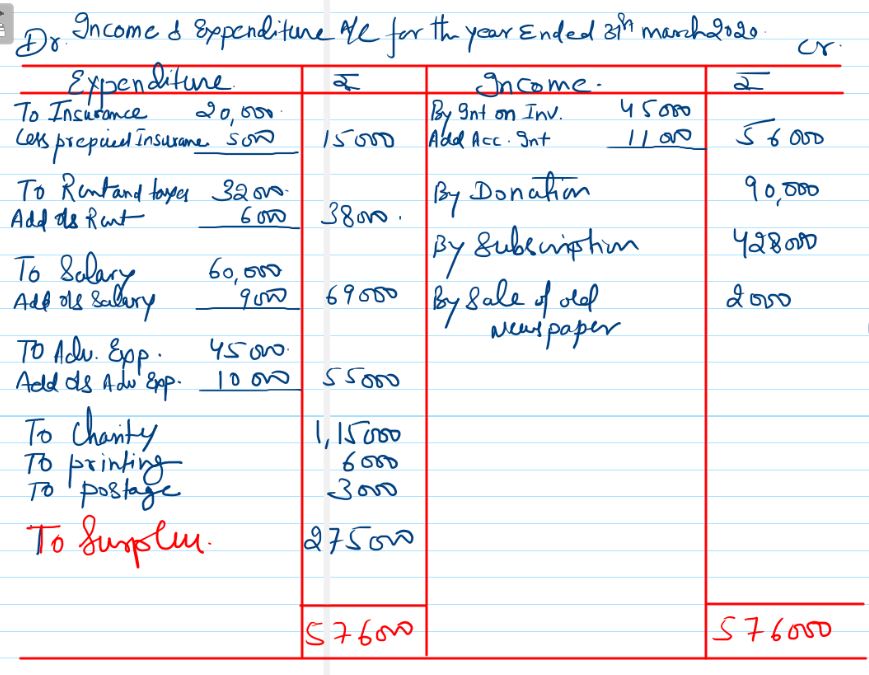 Dr. Income & Expenditure A/c for the year Ended 31th march 2020. Cr.
Expenditure ₹ Income. ₹
To Insurance 20,000. By Int on Inv. 45000
Less prepaid Insurance 5000 15000 Add Acc. Int 11000 56000
To Rent and taxes 32000. By Donation 90,000
Add o/s Rent 6000 38000.
By Subscription 428000
To Salary 60,000
Add o/s Salary 9000 69000 By Sale of old 2000
Newspaper
To Adv. Exp. 45000.
Add o/s Adv Exp. 10000 55000
To Charity 1,15000
To printing 6000
To postage 3000
To Surplus. 275000
576000 576000